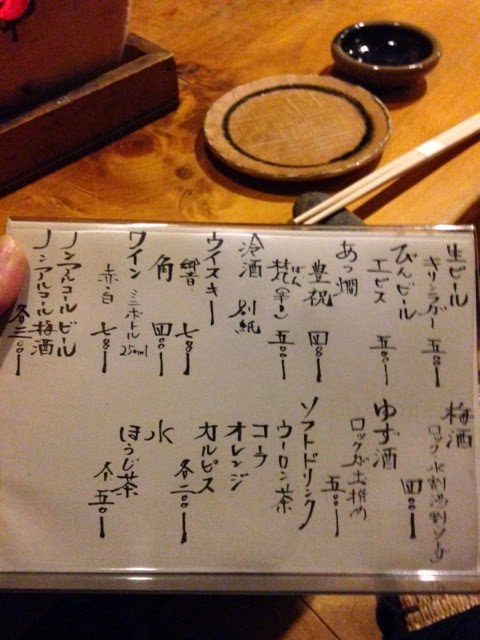 生ビール
キリンラガー 五〇〇ー
びんビール
エビス 五〇〇ー
あつ燗
豊祝 四〇〇ー
梵(辛口) 五〇〇ー
ぼん
冷酒 別紙
ウイスキー
響 七八〇ー
角 四〇〇ー
ワイン ミニボトル 250ml
赤白 七八〇ー
ノンアルコールビール
ノンアルコール梅酒
各三〇〇ー
梅酒
ロック 水割 湯割 ソーダ
四〇〇ー
ゆず酒
ロックがお奨め
五〇〇ー
ソフトドリンク
ウーロン茶
コーラ
オレンジ
カルピス
各二〇〇ー
水
ほうじ茶
各五〇ー